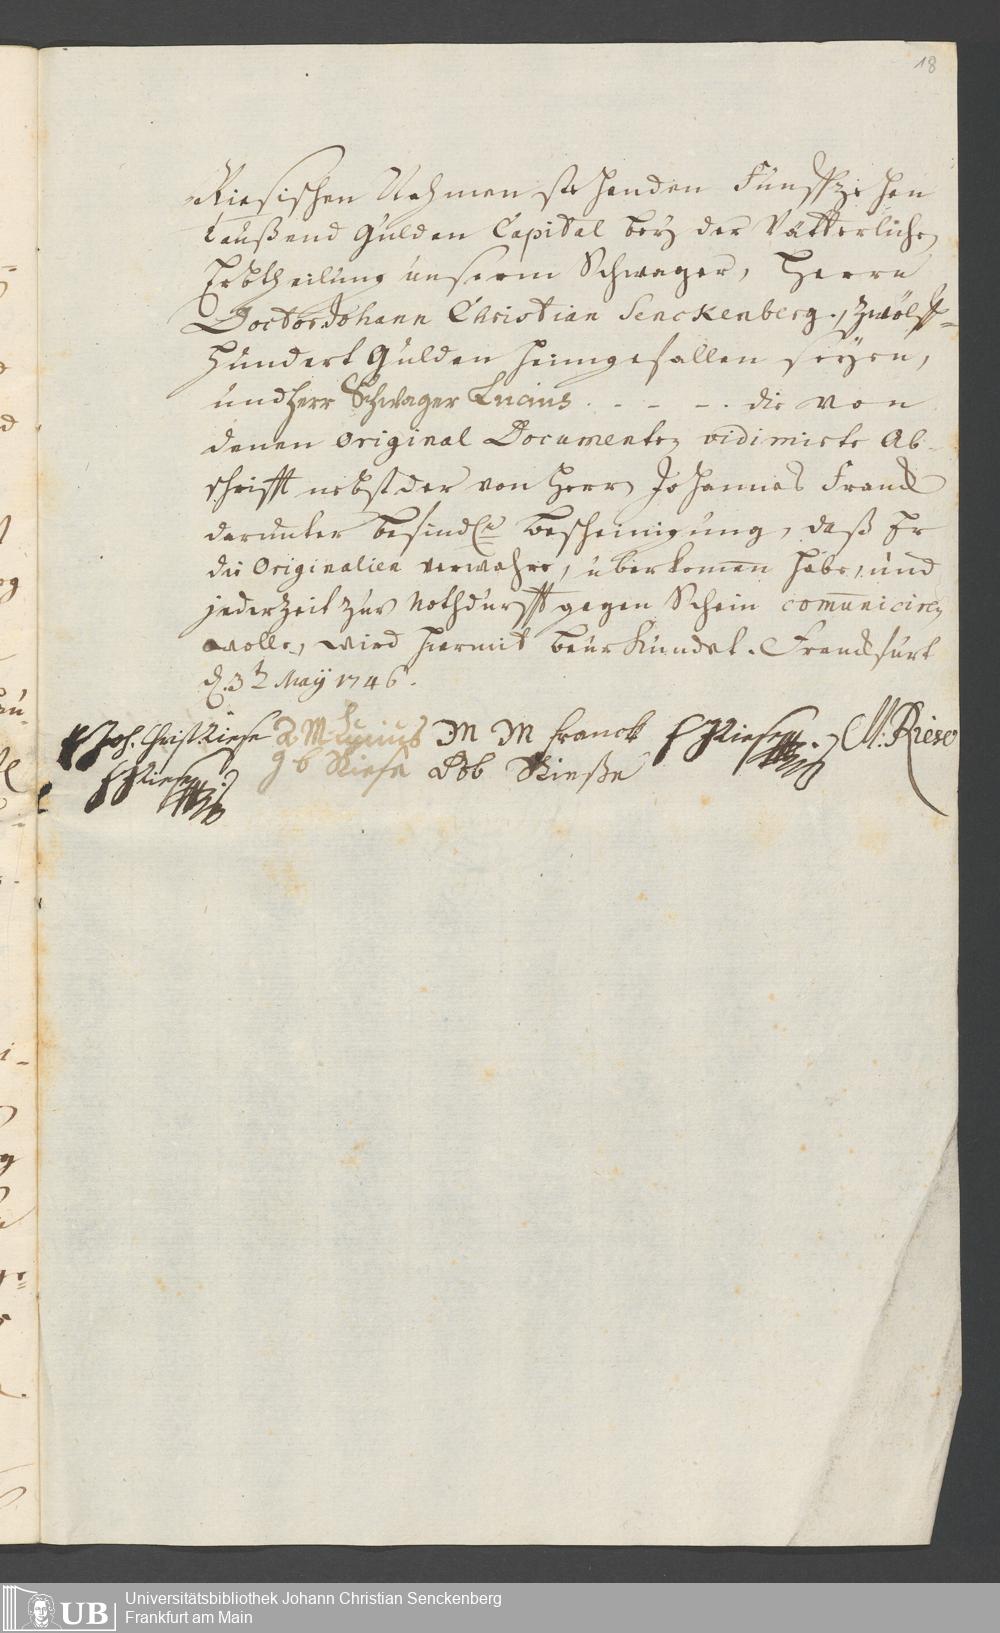 18
Riesischen Nahmen stehenden Fünffzehen
taußend Gulden Capital bey der Vätterlichen
Erbtheilung unserm Schwager, Herrn
Doctor Johann Christian Senckenberg, zwölff-
hundert Gulden heimgefallen seyen,
und Herr Schwager Lucius . - - - . die von
denen Original Documenten vidimirte Ab-
schrifft nebst der von Herrn Johannes Franck
darunter befindl. Bescheinigung, daß Er
die Originalien verwahre, überkomen habe, und
jederzeit zur Nothdurfft gegen Schein comuniciren
wolle, wird hiermit beurkundet. Franckfurt
d. 3t May 1746.
Joh. Christ. Riese R M Lucius M M Franck Riese M: Riese
Riese J b Riese Rieße
Universitätsbibliothek Johann Christian Senckenberg
Frankfurt am Main
UB